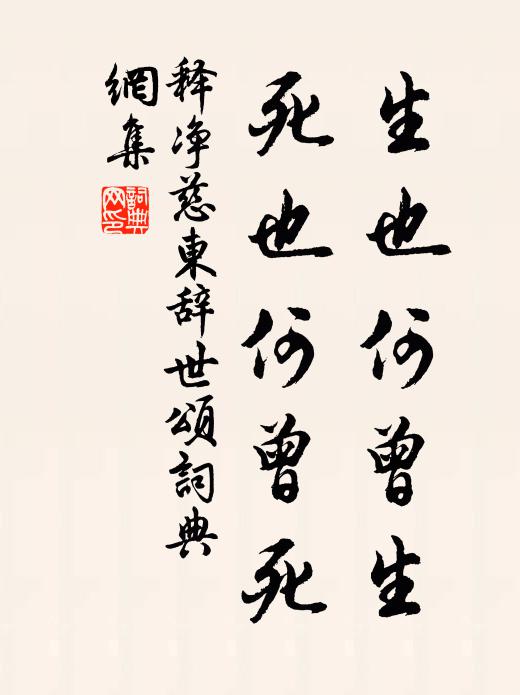 生也何曾生
死也何曾死
释净慈東辞世頌詞典
網集
詞典网印